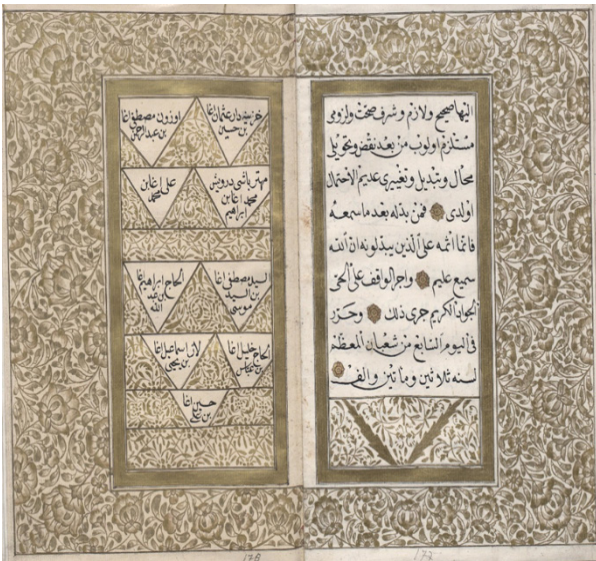 اليها صحيح ولازم وشرف صحت ولزومی
مستلزم اولوب من بعد نقض وتحويلی
محال وتبديل وتغييری عديم الاحتمال
اولدی فمن بدله بعد ما سمعه
فانما اثمه علی الذين يبدلونه ان الله
سميع عليم واجر الواقف علی الحی
الجواد الكريم جری ذلك وحرر
فی اليوم السابع من شعبان المعظم
لسنه ثلاثين ومائتين والف
خزينه دار عثمان اغا
بن حسين
اوزون مصطفی اغا
بن عبد الرحمن
مهتر باشی درويش
محمد اغا بن
ابراهيم
علی اغا بن
محمد
السيد مصطفی اغا
بن السيد
موسی
الحاج ابراهيم اغا
بن عبد
الله
الحاج خليل اغا
بن
لاز اسماعيل اغا
بن يحيی
حسين اغا
بن علی
178